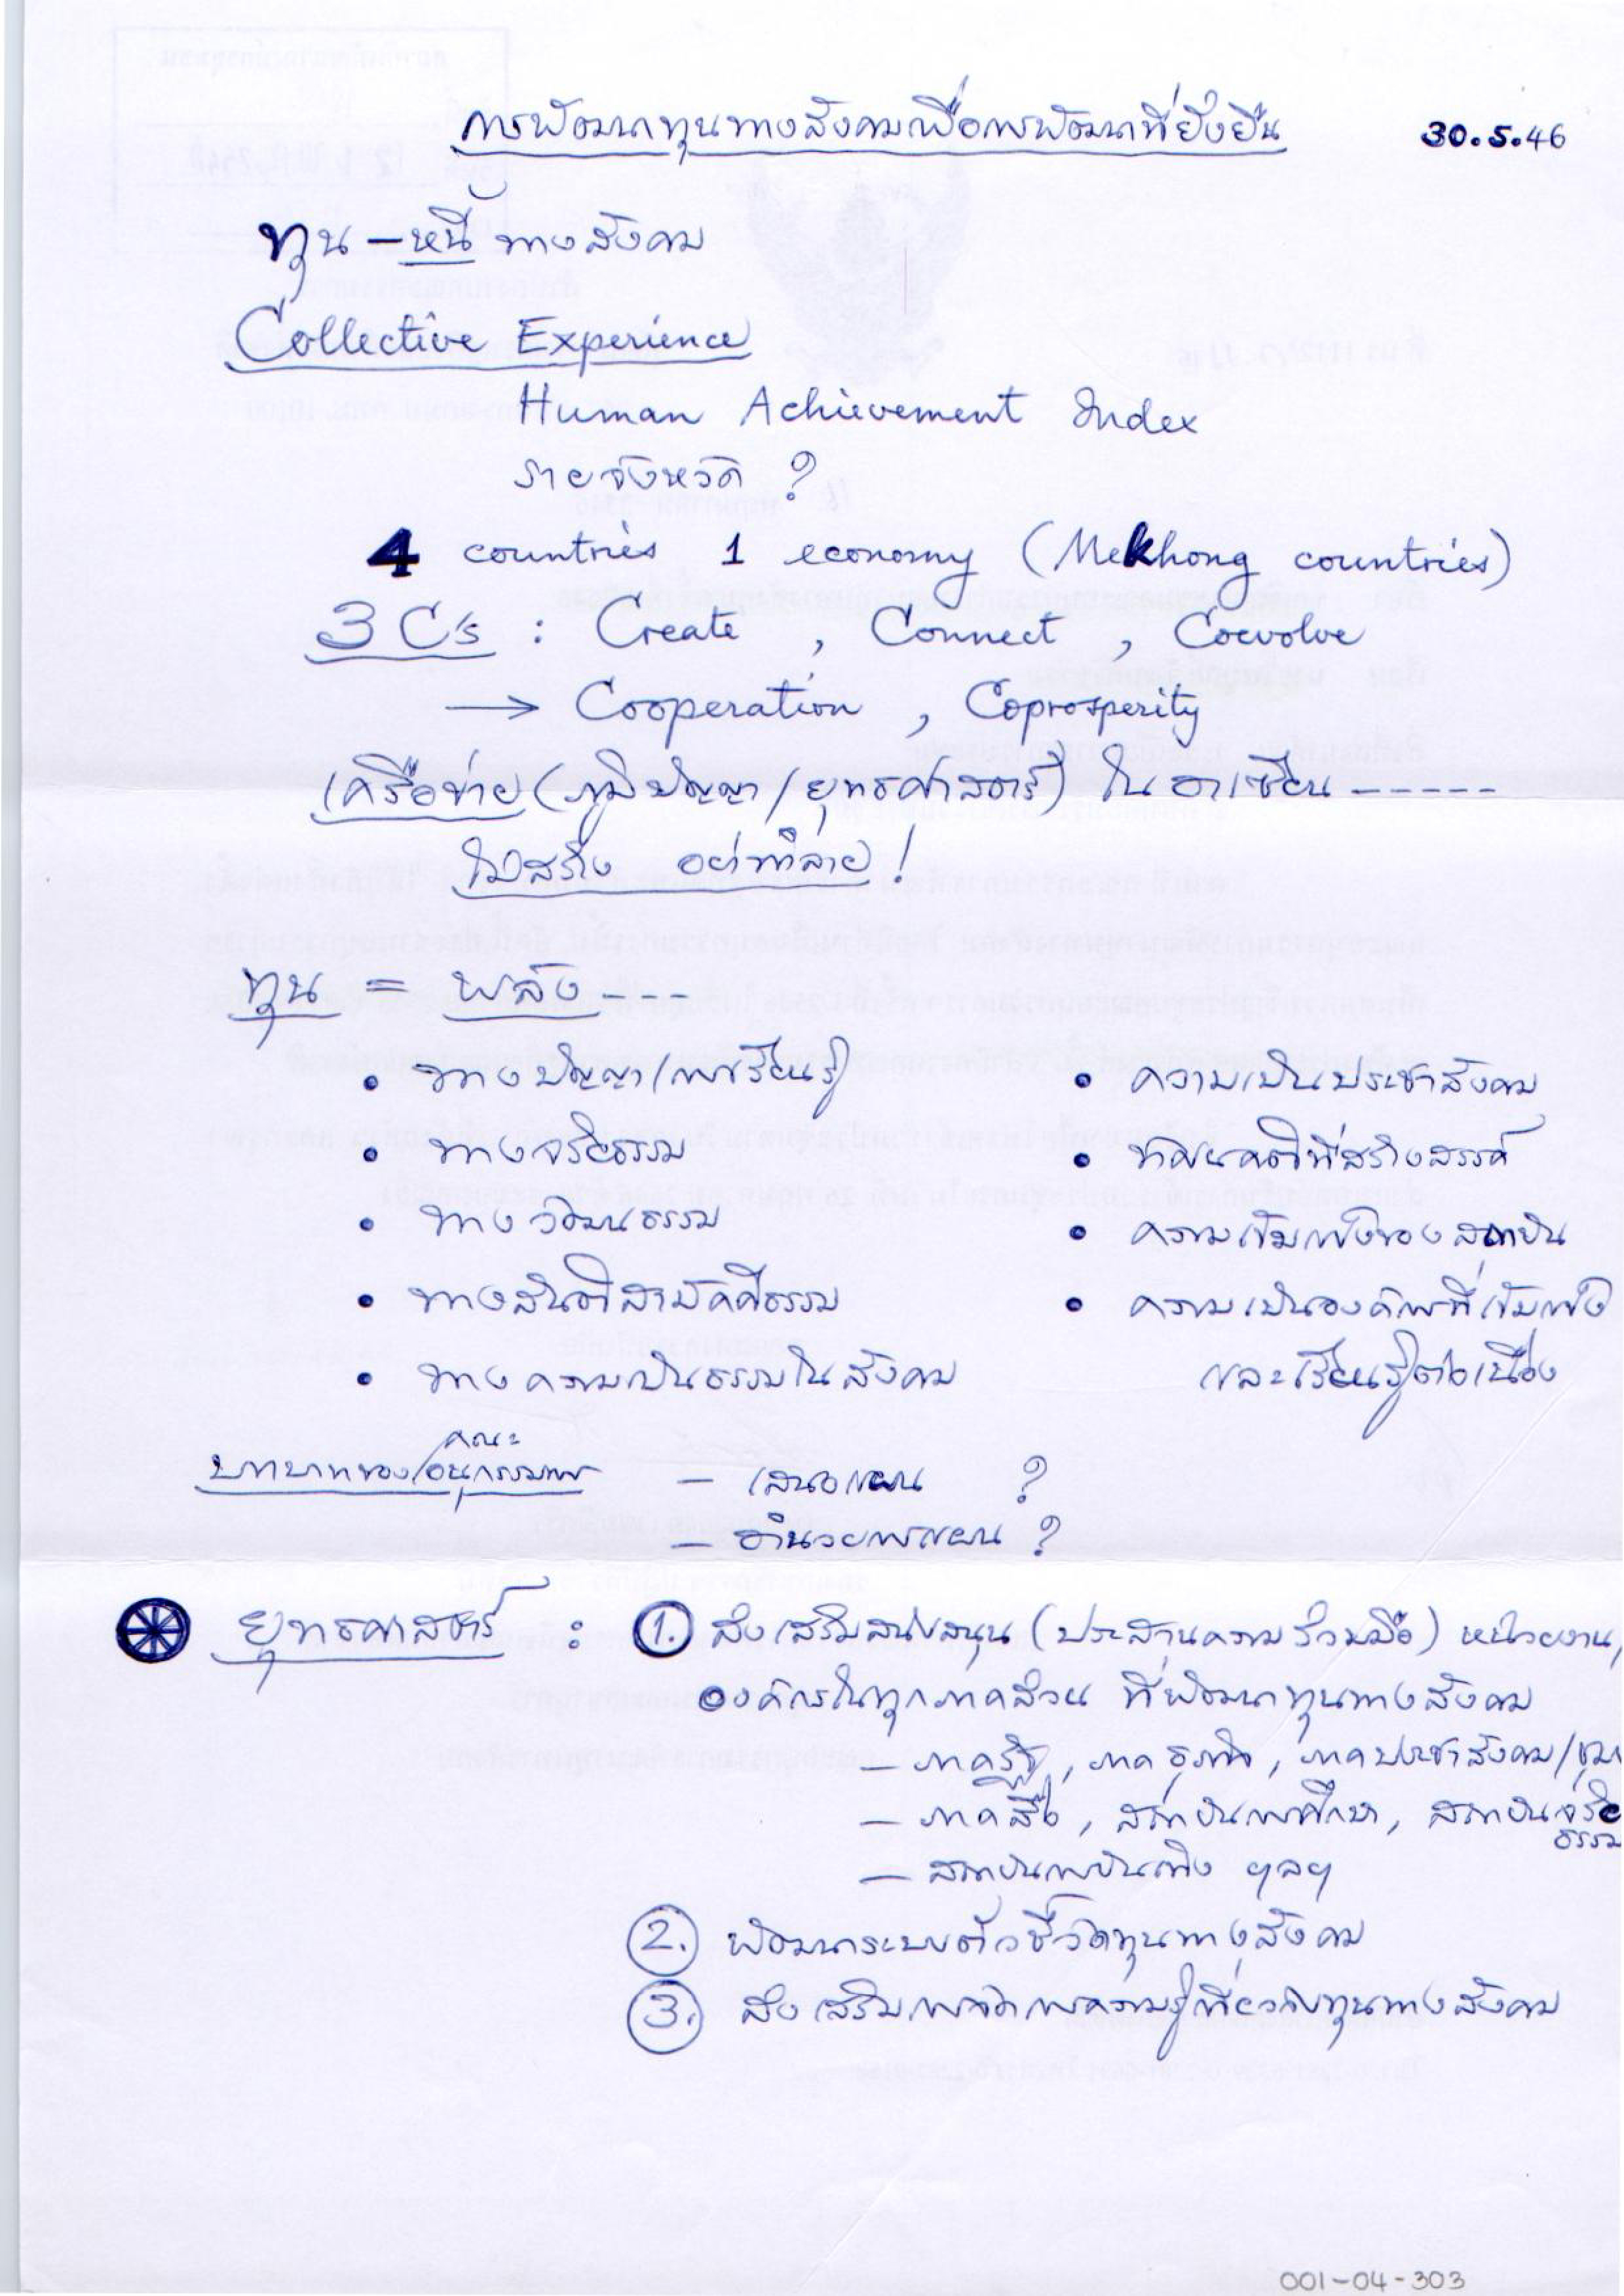 การพัฒนาทุนทางสังคมเพื่อการพัฒนาที่ยั่งยืน 30.5.46
ทุน – หนี้ ทางสังคม
Collective Experience
Human Achievement Index
รายจังหวัด ?
4 countries 1 economy (Mekhong countries)
3 C's : Create , Connect , Coevolve
→ Cooperation , Coprosperity
เครือข่าย (ภูมิปัญญา/ยุทธศาสตร์) ในอาเซียน -----
ไม่สร้าง อย่าทำลาย !
ทุน = พลัง ---
• ทางปัญญา/การเรียนรู้ • ความเป็นประชาสังคม
• ทางจริยธรรม • ทัศนคติที่สร้างสรรค์
• ทางวัฒนธรรม • ความเข้มแข็งของสถาบัน
• ทางสันติสามัคคีธรรม • ความเป็นองค์การที่เข้มแข็ง
• ทางความเป็นธรรมในสังคม และเรียนรู้ต่อเนื่อง
คณะ
บทบาทของ/อนุกรรมการ – เสนอแผน ?
– อำนวยการแผน ?
ยุทธศาสตร์ : 1. ส่งเสริมสนับสนุน (ประสานความร่วมมือ) หน่วยงาน,
องค์กรในทุกภาคส่วน ที่พัฒนาทุนทางสังคม
– ภาครัฐ, ภาคธุรกิจ, ภาคประชาสังคม/
– ภาคสื่อ, สถาบันการศึกษา, สถาบันจริย
ธรรม
– สถาบันการบันเทิง ฯลฯ
2. พัฒนาระบบตัวชี้วัดทุนทางสังคม
3. ส่งเสริมการจัดการความรู้เกี่ยวกับทุนทางสังคม
001-04-303